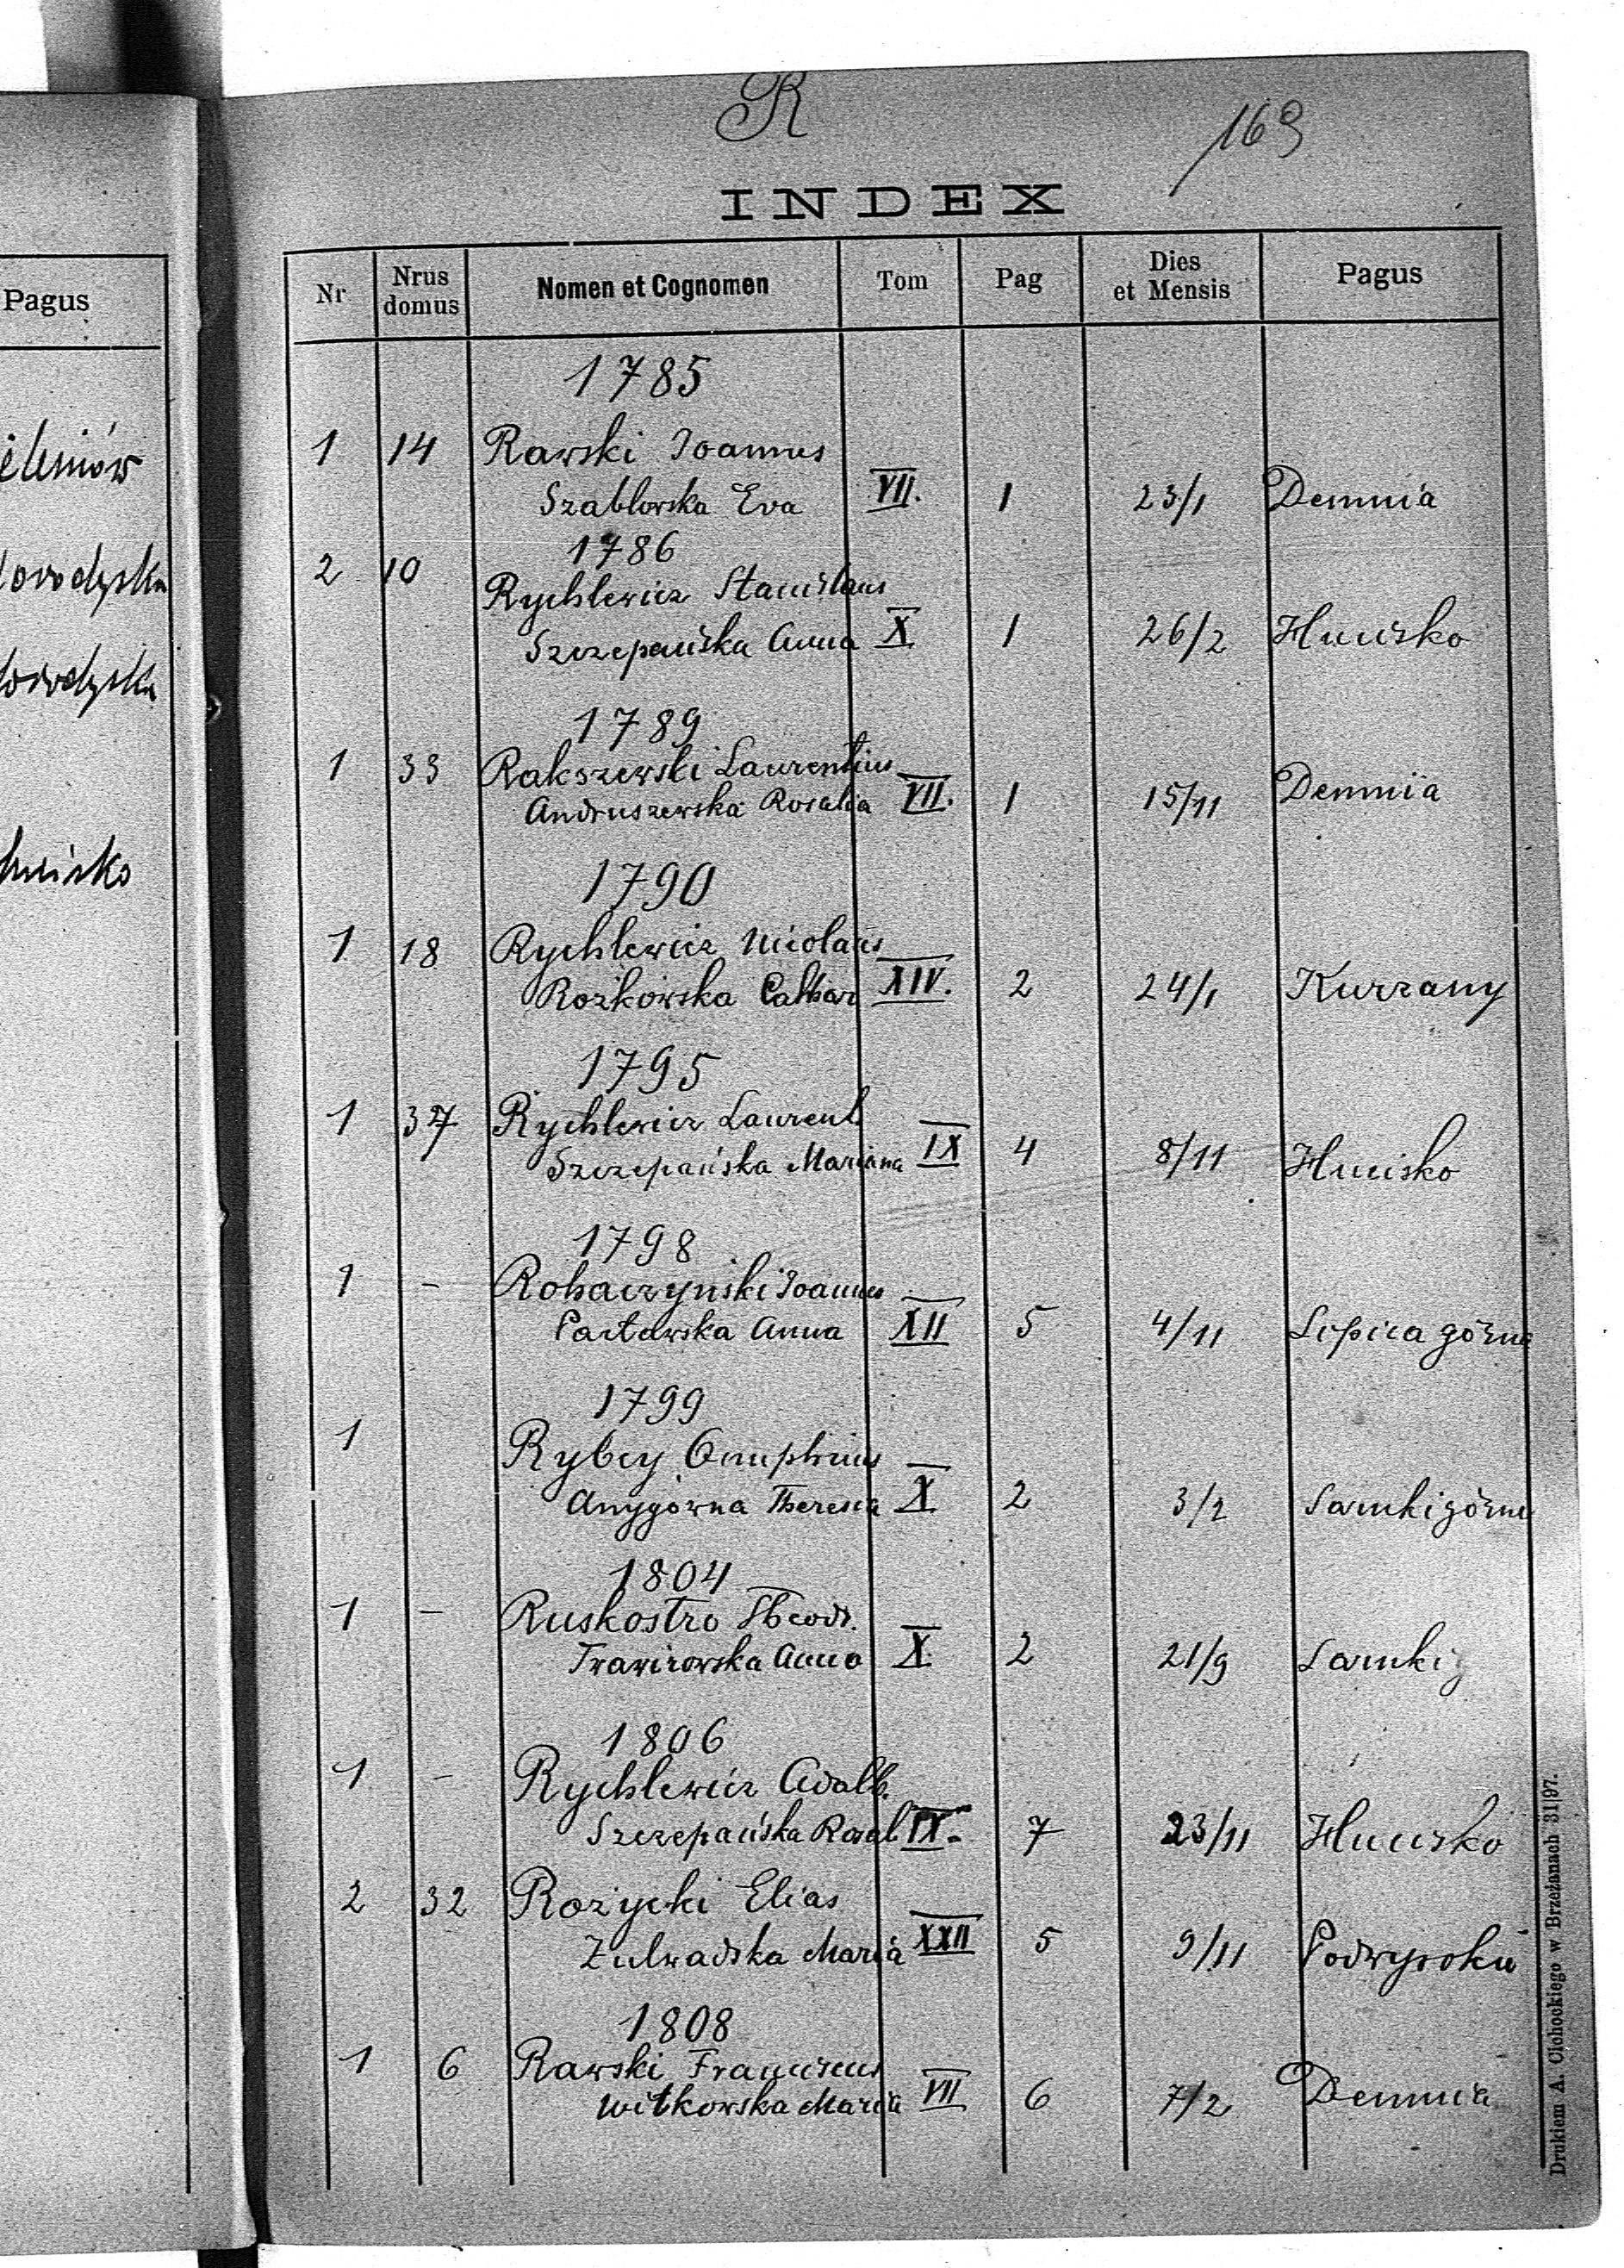 Pagus
hnisko
R
169
INDEX
Nr Nrus domus Nomen et Cognomen Tom Pag Dies et Mensis Pagus
1785
1 14 Rawski Joannes
Szablowska Eva VII. 1 23/1 Demnia
1786
2 10 Rychlewicz Stanislaus
Szczepańska Anna X 1 26/2 Hucisko
1789
1 33 Rakszewski Laurentius
Andruszewska Rosalia VII. 1 15/11 Demnia
1790
1 18 Rychlewicz Nicolaus
Rozkowska Cathar XIV. 2 24/1 Kurzany
1795
1 37 Rychlewicz Laurent.
Szczepańska Mariana IX 4 8/11 Hucisko
1798
1 - Rohaczyński Joannes
Anna XII 5 4/11 Lipica górna
1799
1 Rybcy Onuphrius
Anygówna Theresia X 2 3/2 Sarnki górne
1804
1 - Ruskostro Theod.
Anna X. 2 21/9 Sarnki g
1806
1 - Rychlewicz Adalb.
Szczepańska Rosal. IX. 7 23/11 Hucisko
2 32 Rożycki Elias
Zulwadska Maria XXII 5 9/11 Podwysokie
1808
1 6 Rawski Franciscus
Witkowska Maria VII 6 7/2 Demnia
Drukiem A. Clohockiego w Brzeżanach 31|97.